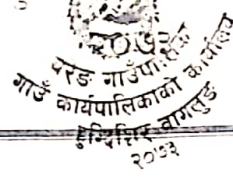 २०७३
वरेङ गाउँपालिका
गाउँ कार्यपालिकाको कार्यालय
हुग्दिशिर, बागलुङ
२०७३